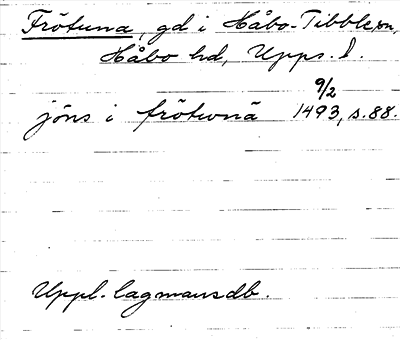 Frötuna, gd i Håbo-Tibble sn,
Håbo hd, Upps. l.
9/2
jöns i frötwnä 1493, s. 88.
Uppl. lagmansdb.